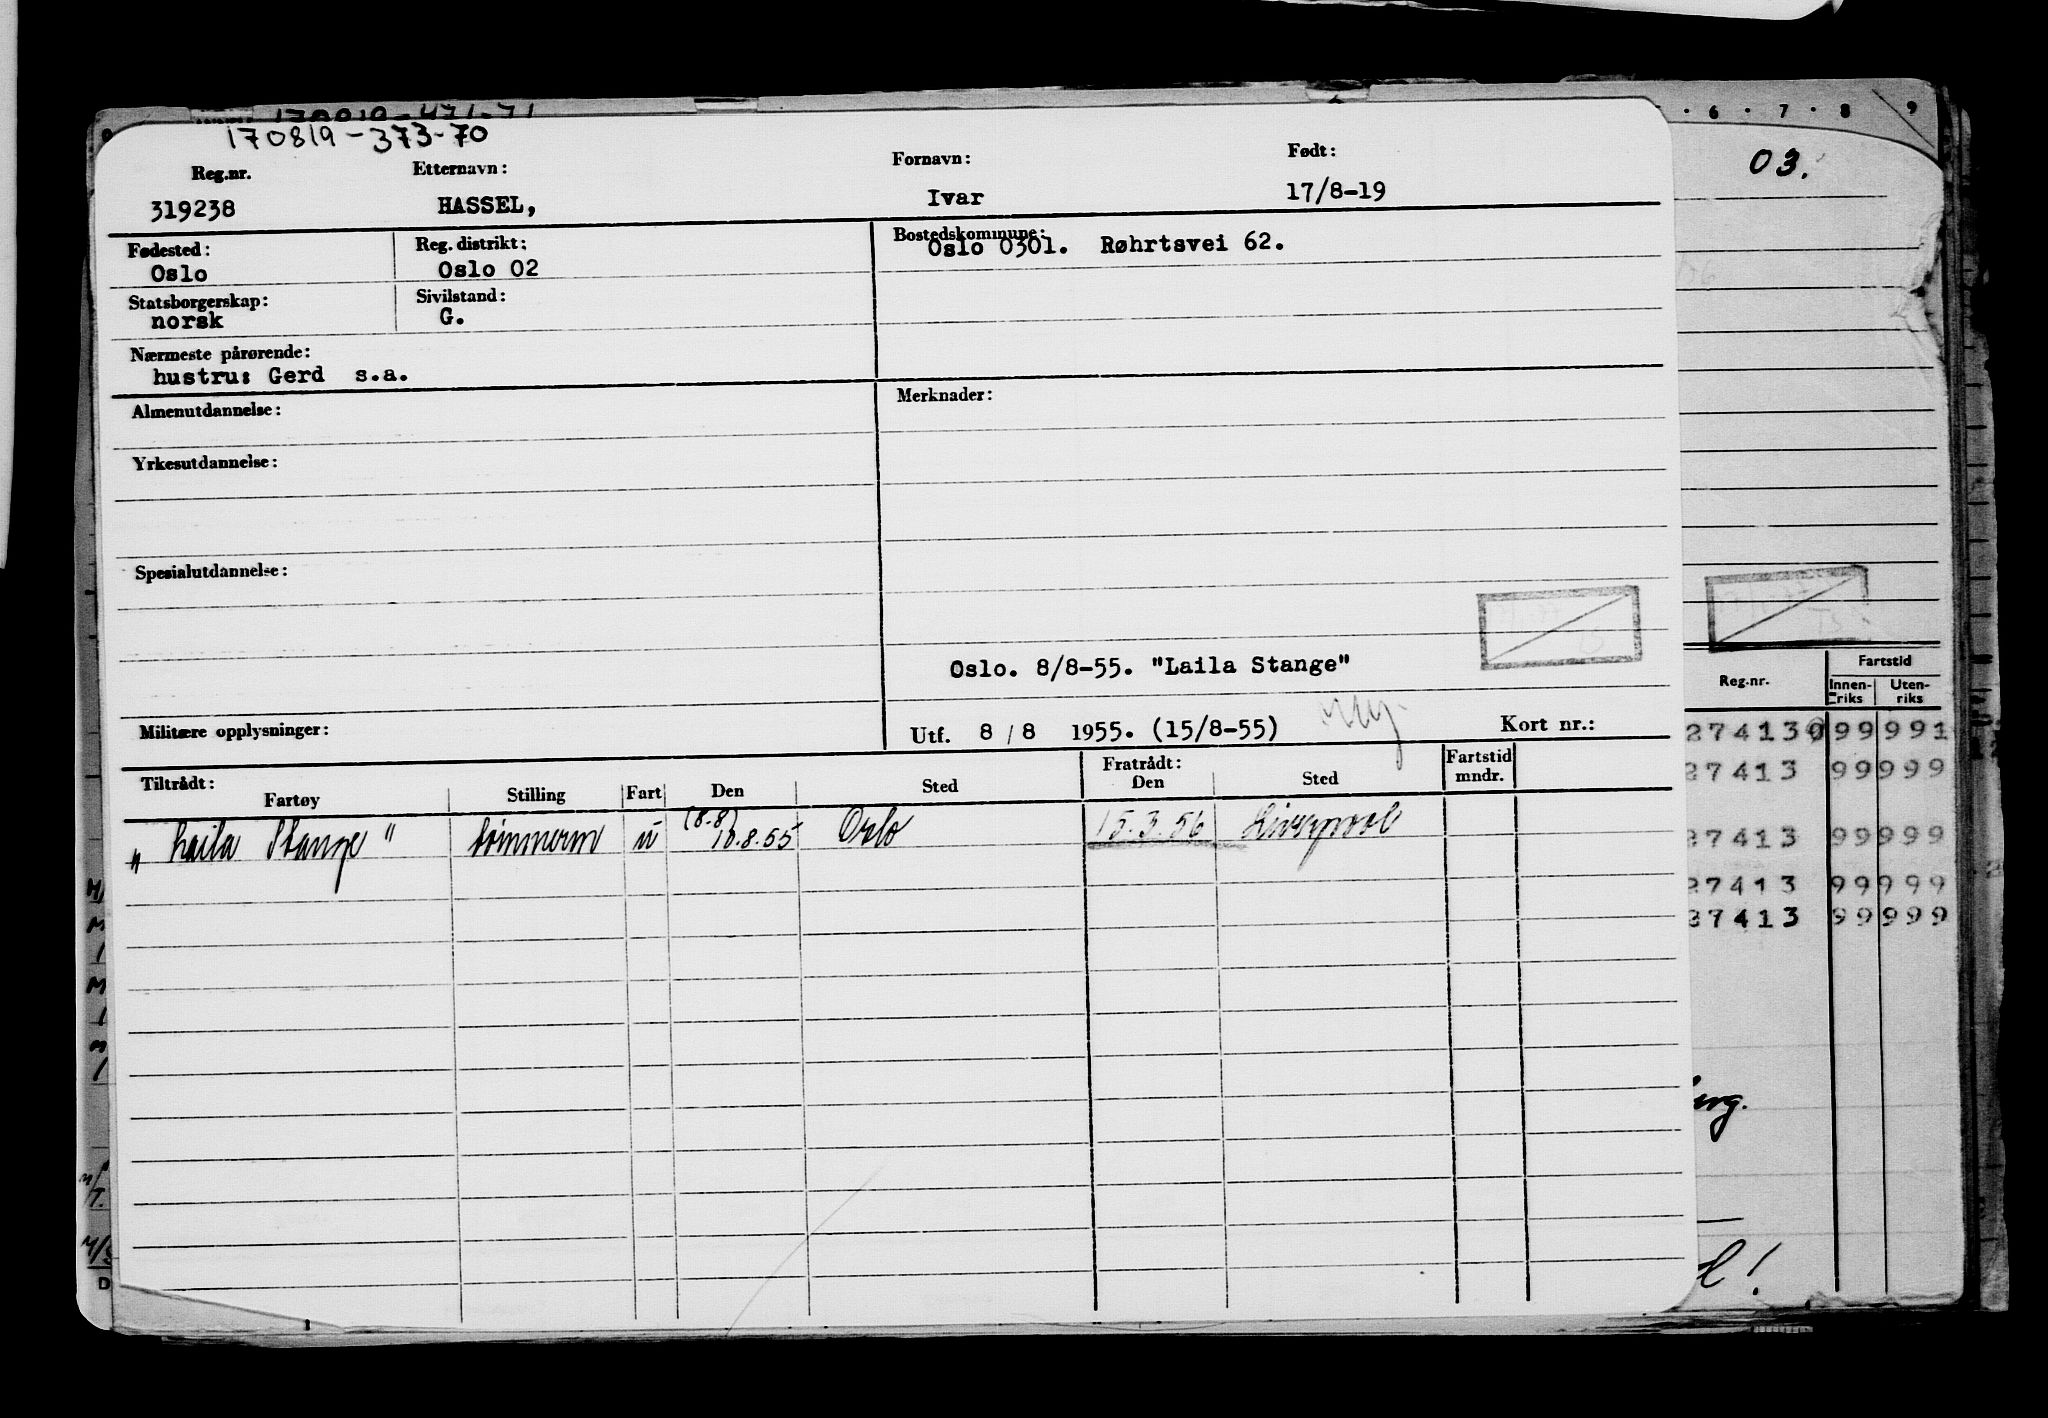 170819-373-70
Reg.nr. Etternavn: Fornavn: Født:
319238 HASSEL, Ivar 17/8-19
Fødested: Reg. distrikt: Bostedskommune:
Oslo Oslo 02 Oslo 0301. Røhrtsvei 62.
Statsborgerskap: Sivilstand:
norsk G.
Nærmeste pårørende:
hustru: Gerd s.a.
Almenutdannelse: Merknader:
Yrkesutdannelse:
Spesialutdannelse:
Oslo. 8/8-55. "Laila Stange"
Militære opplysninger: Utf. 8/8 1955. (15/8-55) Kort nr.:
Tiltrådt: Fratrådt: Fartstid
Fartøy Stilling Fart Den Sted Den Sted mndr.
(8.8)
"Laila Stange" tømmerm u 10.8.55 Oslo 15.3.56 Liverpool
6 7 8 9
03.
Reg.nr. Fartstid
Innen-riks Uten-riks
274130 99 991
27413 99 999
27413 99 999
27413 99 999
27413 99 999